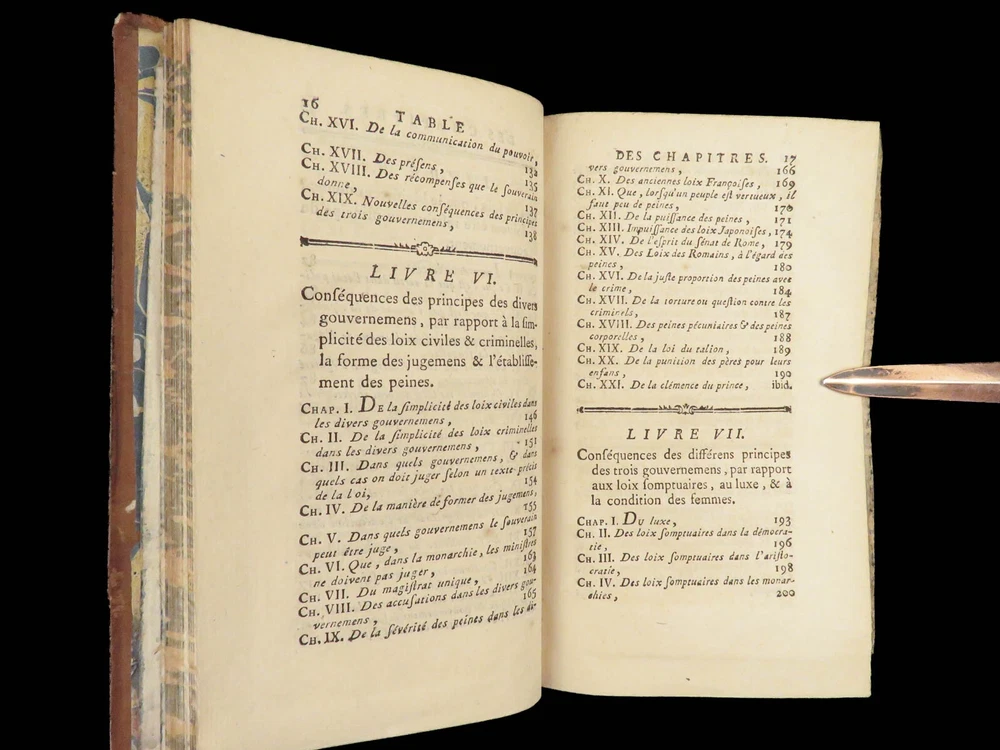 16
TABLE
CH. XVI. De la communication du pouvoir,
132
CH. XVII. Des présens,
135
CH. XVIII. Des récompenses que le souverain
donne,
137
CH. XIX. Nouvelles conséquences des principes
des trois gouvernemens,
138
LIVRE VI.
Conséquences des principes des divers
gouvernemens, par rapport à la sim-
plicité des loix civiles & criminelles,
la forme des jugemens & l'établisse-
ment des peines.
CHAP. I. De la simplicité des loix civiles dans
les divers gouvernemens, 146
CH. II. De la simplicité des loix criminelles
dans les divers gouvernemens, 151
CH. III. Dans quels gouvernemens, & dans
quels cas on doit juger selon un texte précis
de la loi, 154
CH. IV. De la manière de former des jugemens,
155
CH. V. Dans quels gouvernemens le souverain
peut être juge, 157
CH. VI. Que, dans la monarchie, les ministres
ne doivent pas juger, 163
CH. VII. Du magistrat unique, 164
CH. VIII. Des accusations dans les divers gou-
vernemens, 165
CH. IX. De la sévérité des peines dans les di-
DES CHAPITRES. 17
vers gouvernemens, 166
CH. X. Des anciennes loix Françoises, 169
CH. XI. Que, lorsqu'un peuple est vertueux, il
faut peu de peines, 170
CH. XII. De la puissance des peines, 171
CH. XIII. Impuissance des loix Japonoises, 174
CH. XIV. De l'esprit du sénat de Rome, 179
CH. XV. Des Loix des Romains, à l'égard des
peines, 180
CH. XVI. De la juste proportion des peines avec
le crime, 184
CH. XVII. De la torture ou question contre les
criminels, 187
CH. XVIII. Des peines pécuniaires & des peines
corporelles, 188
CH. XIX. De la loi du talion, 189
CH. XX. De la punition des pères pour leurs
enfans, 190
CH. XXI. De la clémence du prince, ibid.
LIVRE VII.
Conséquences des différens principes
des trois gouvernemens, par rapport
aux loix somptuaires, au luxe, & à
la condition des femmes.
CHAP. I. Du luxe, 193
CH. II. Des loix somptuaires dans la démocra-
tie, 196
CH. III. Des loix somptuaires dans l'aristo-
cratie, 198
CH. IV. Des loix somptuaires dans les monar-
chies, 200